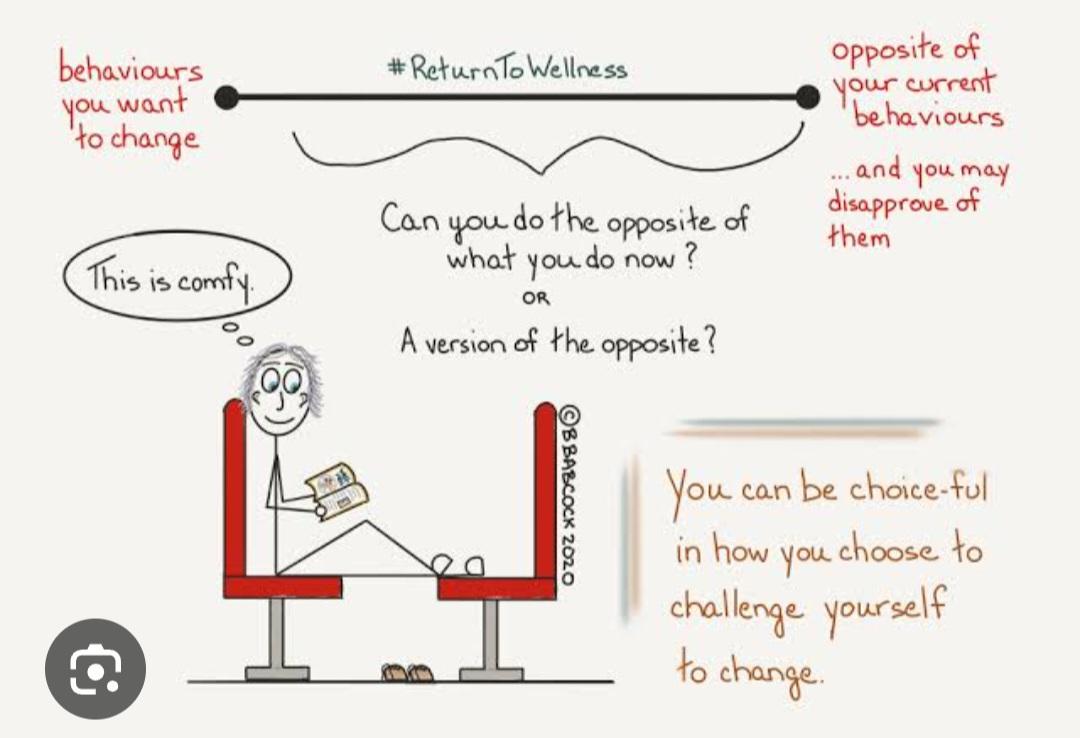 behaviours
you want
to change
#ReturnToWellness
opposite of
your current
behaviours
...and you may
disapprove of
them
Can you do the opposite of
what you do now?
OR
A version of the opposite?
This is comfy.
© B BABCOCK 2020
You can be choice-ful
in how you choose to
challenge yourself
to change.